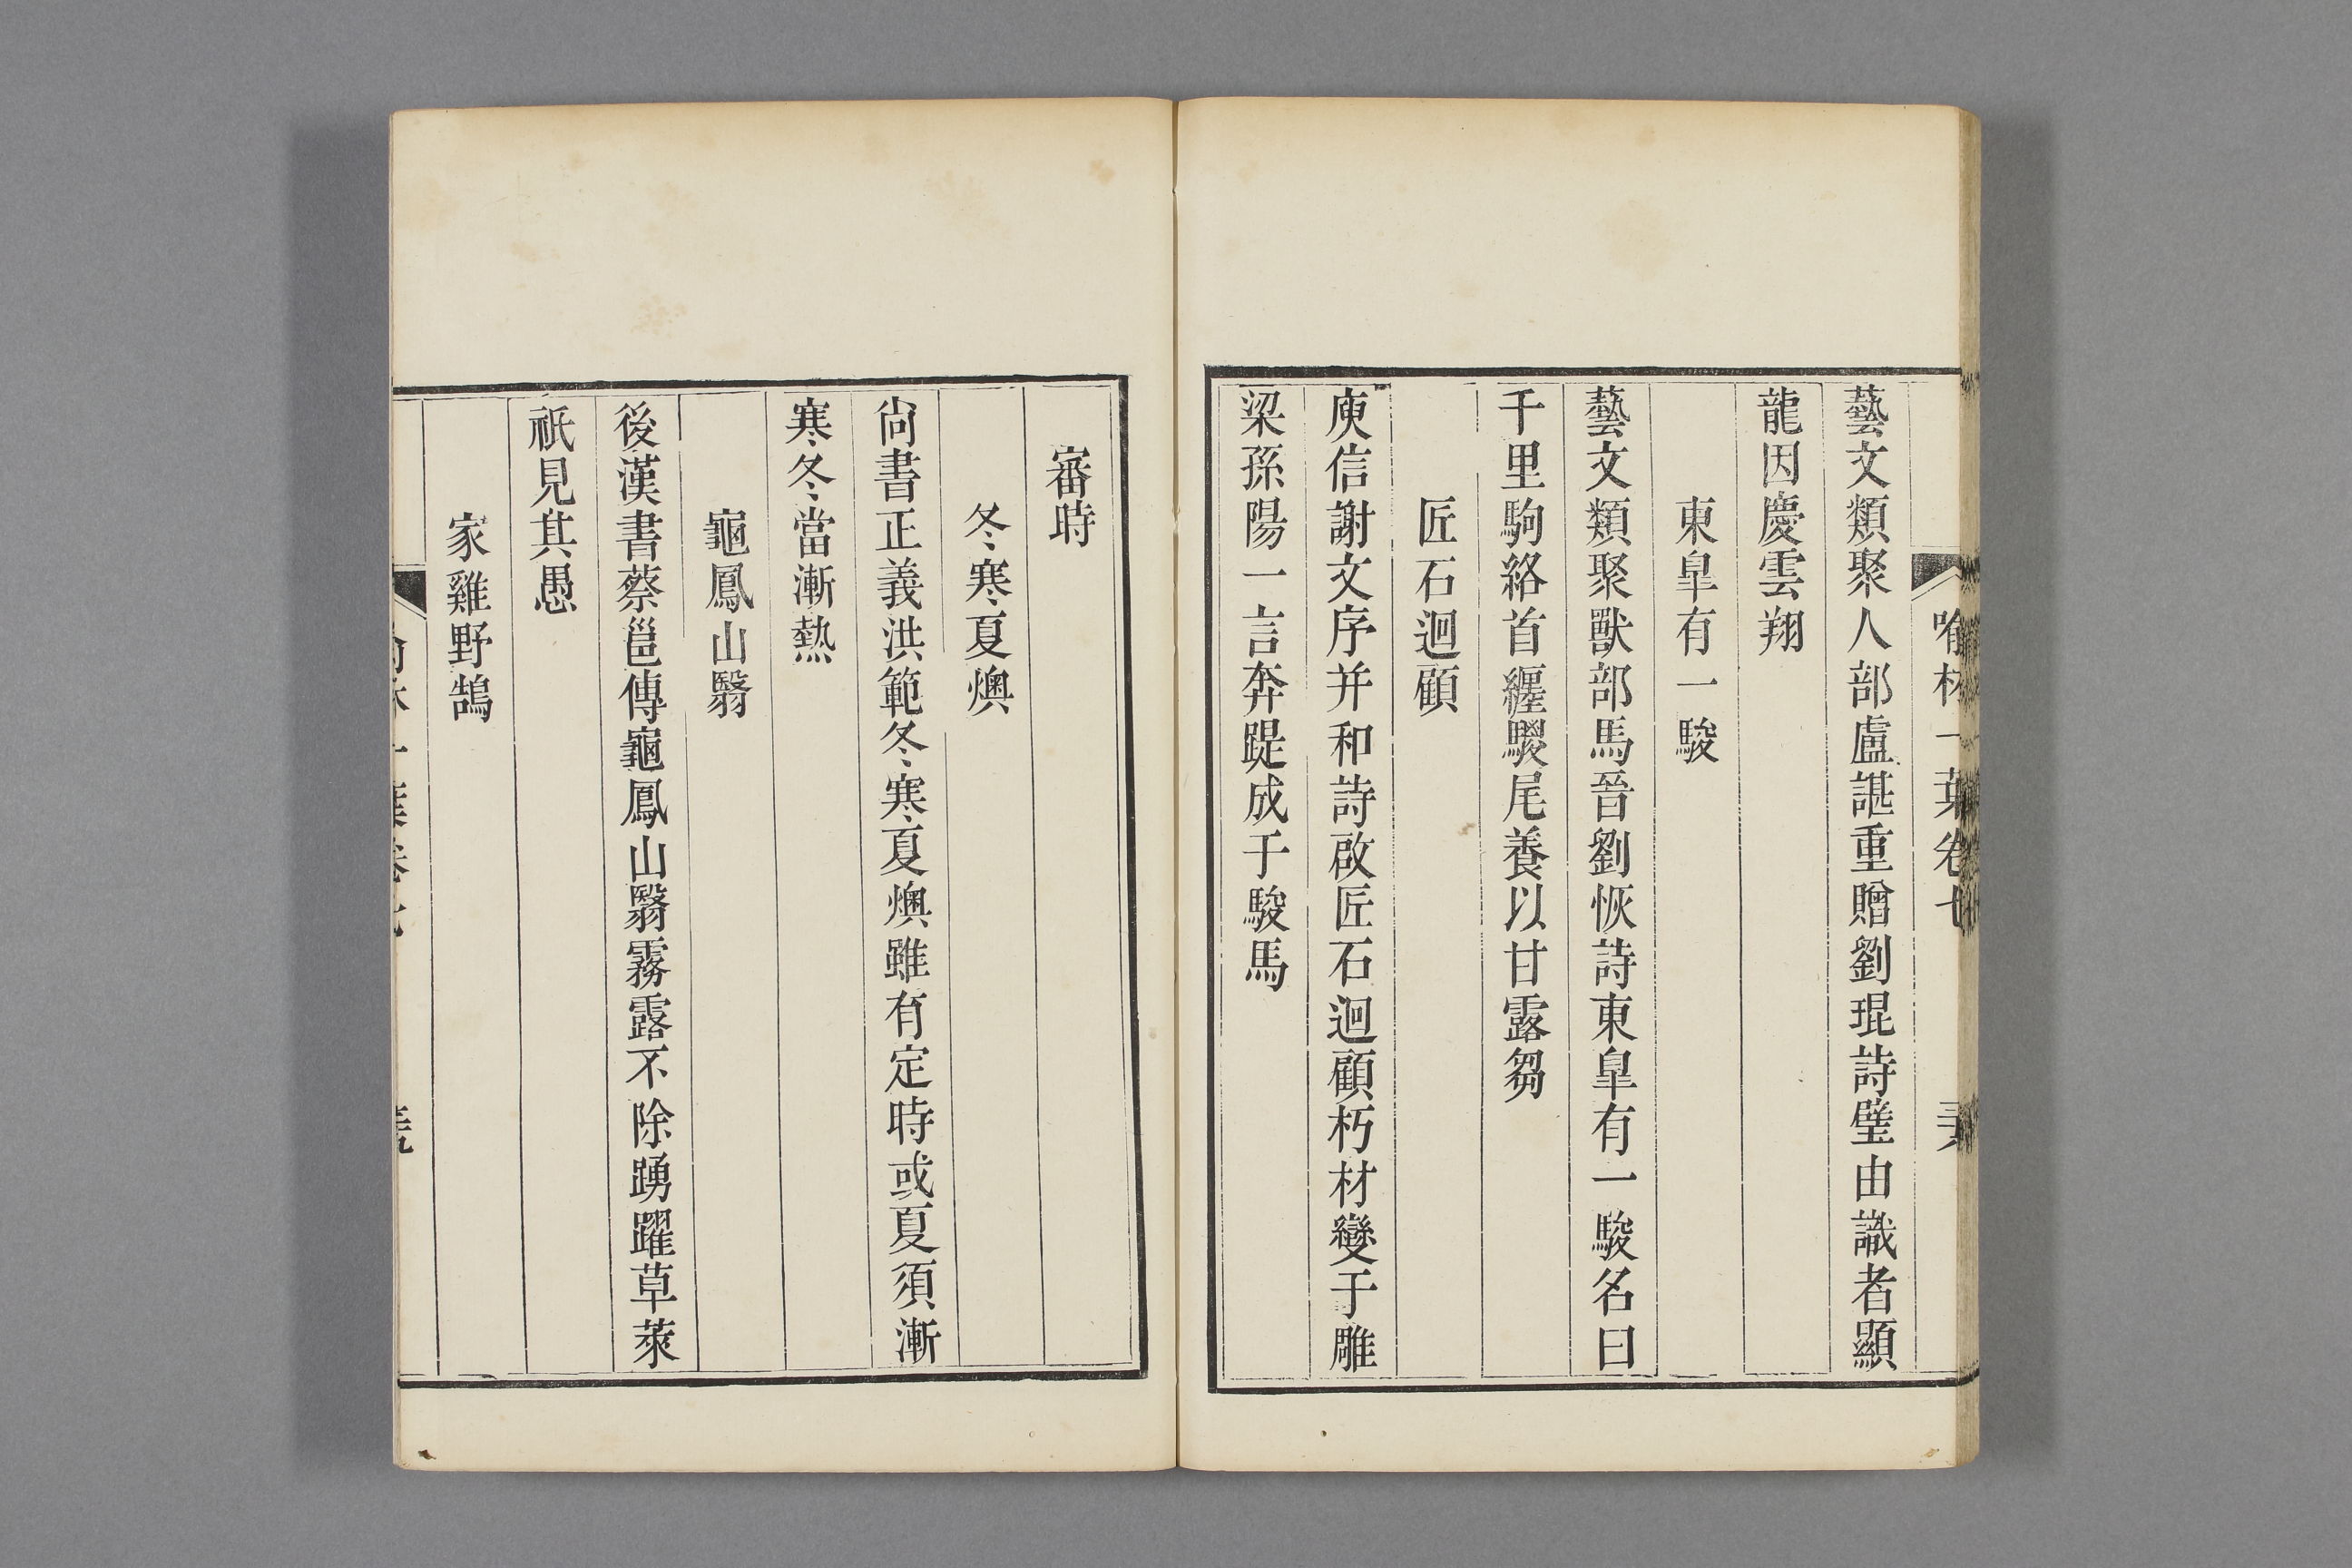 喻林一葉卷七
藝文類聚人部盧諶重贈劉琨詩璧由識者顯
龍因慶雲翔
東臯有一駿
藝文類聚獸部馬晉劉恢詩東臯有一駿名曰
千里駒絡首纏騣尾養以甘露芻
匠石迴顧
庾信謝文序并和詩啟匠石迴顧朽材變于雕
梁孫陽一言奔踶成于駿馬
審時
冬寒夏燠
尚書正義洪範冬寒夏燠雖有定時或夏須漸
寒冬當漸熱
龜鳳山翳
後漢書蔡邕傳龜鳳山翳霧露不除踴躍草萊
祇見其愚
家雞野鵠